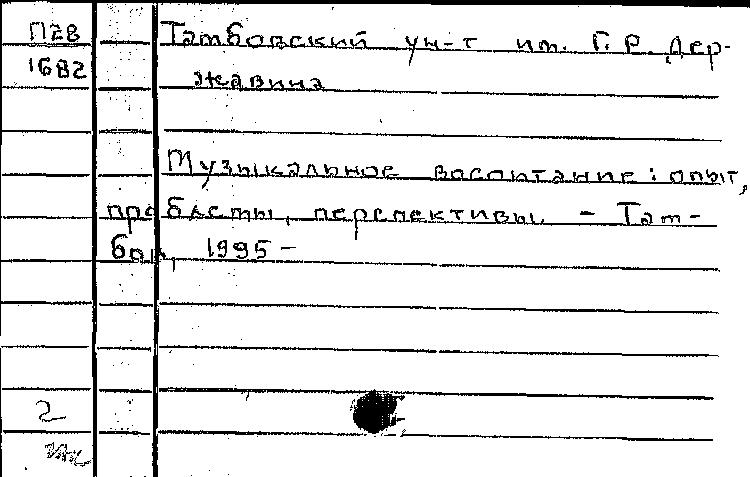 П28 Тамбовский ун-т им. Г.Р. Дер-
1682 жавина
Музыкальное воспитание: опыт,
проблемы, перспективы. - Там-
бов, 1995 -
2